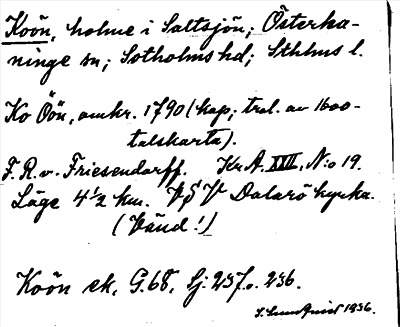 Koön, holme i Saltsjön; Österha-
ninge sn; Sotholms hd; Sthlms l.
Ko Öön, omkr. 1790 (kop; trol. av 1600-
talskarta).
F. R. v. Friesendorff. Kr A. XXIII, N:o 19.
Läge 4 1/2 km. VSV Dalarö kyrka.
(Vänd!)
Koön ek. G.68, Sj: 257 o. 256.
S. Lundquist 1936.